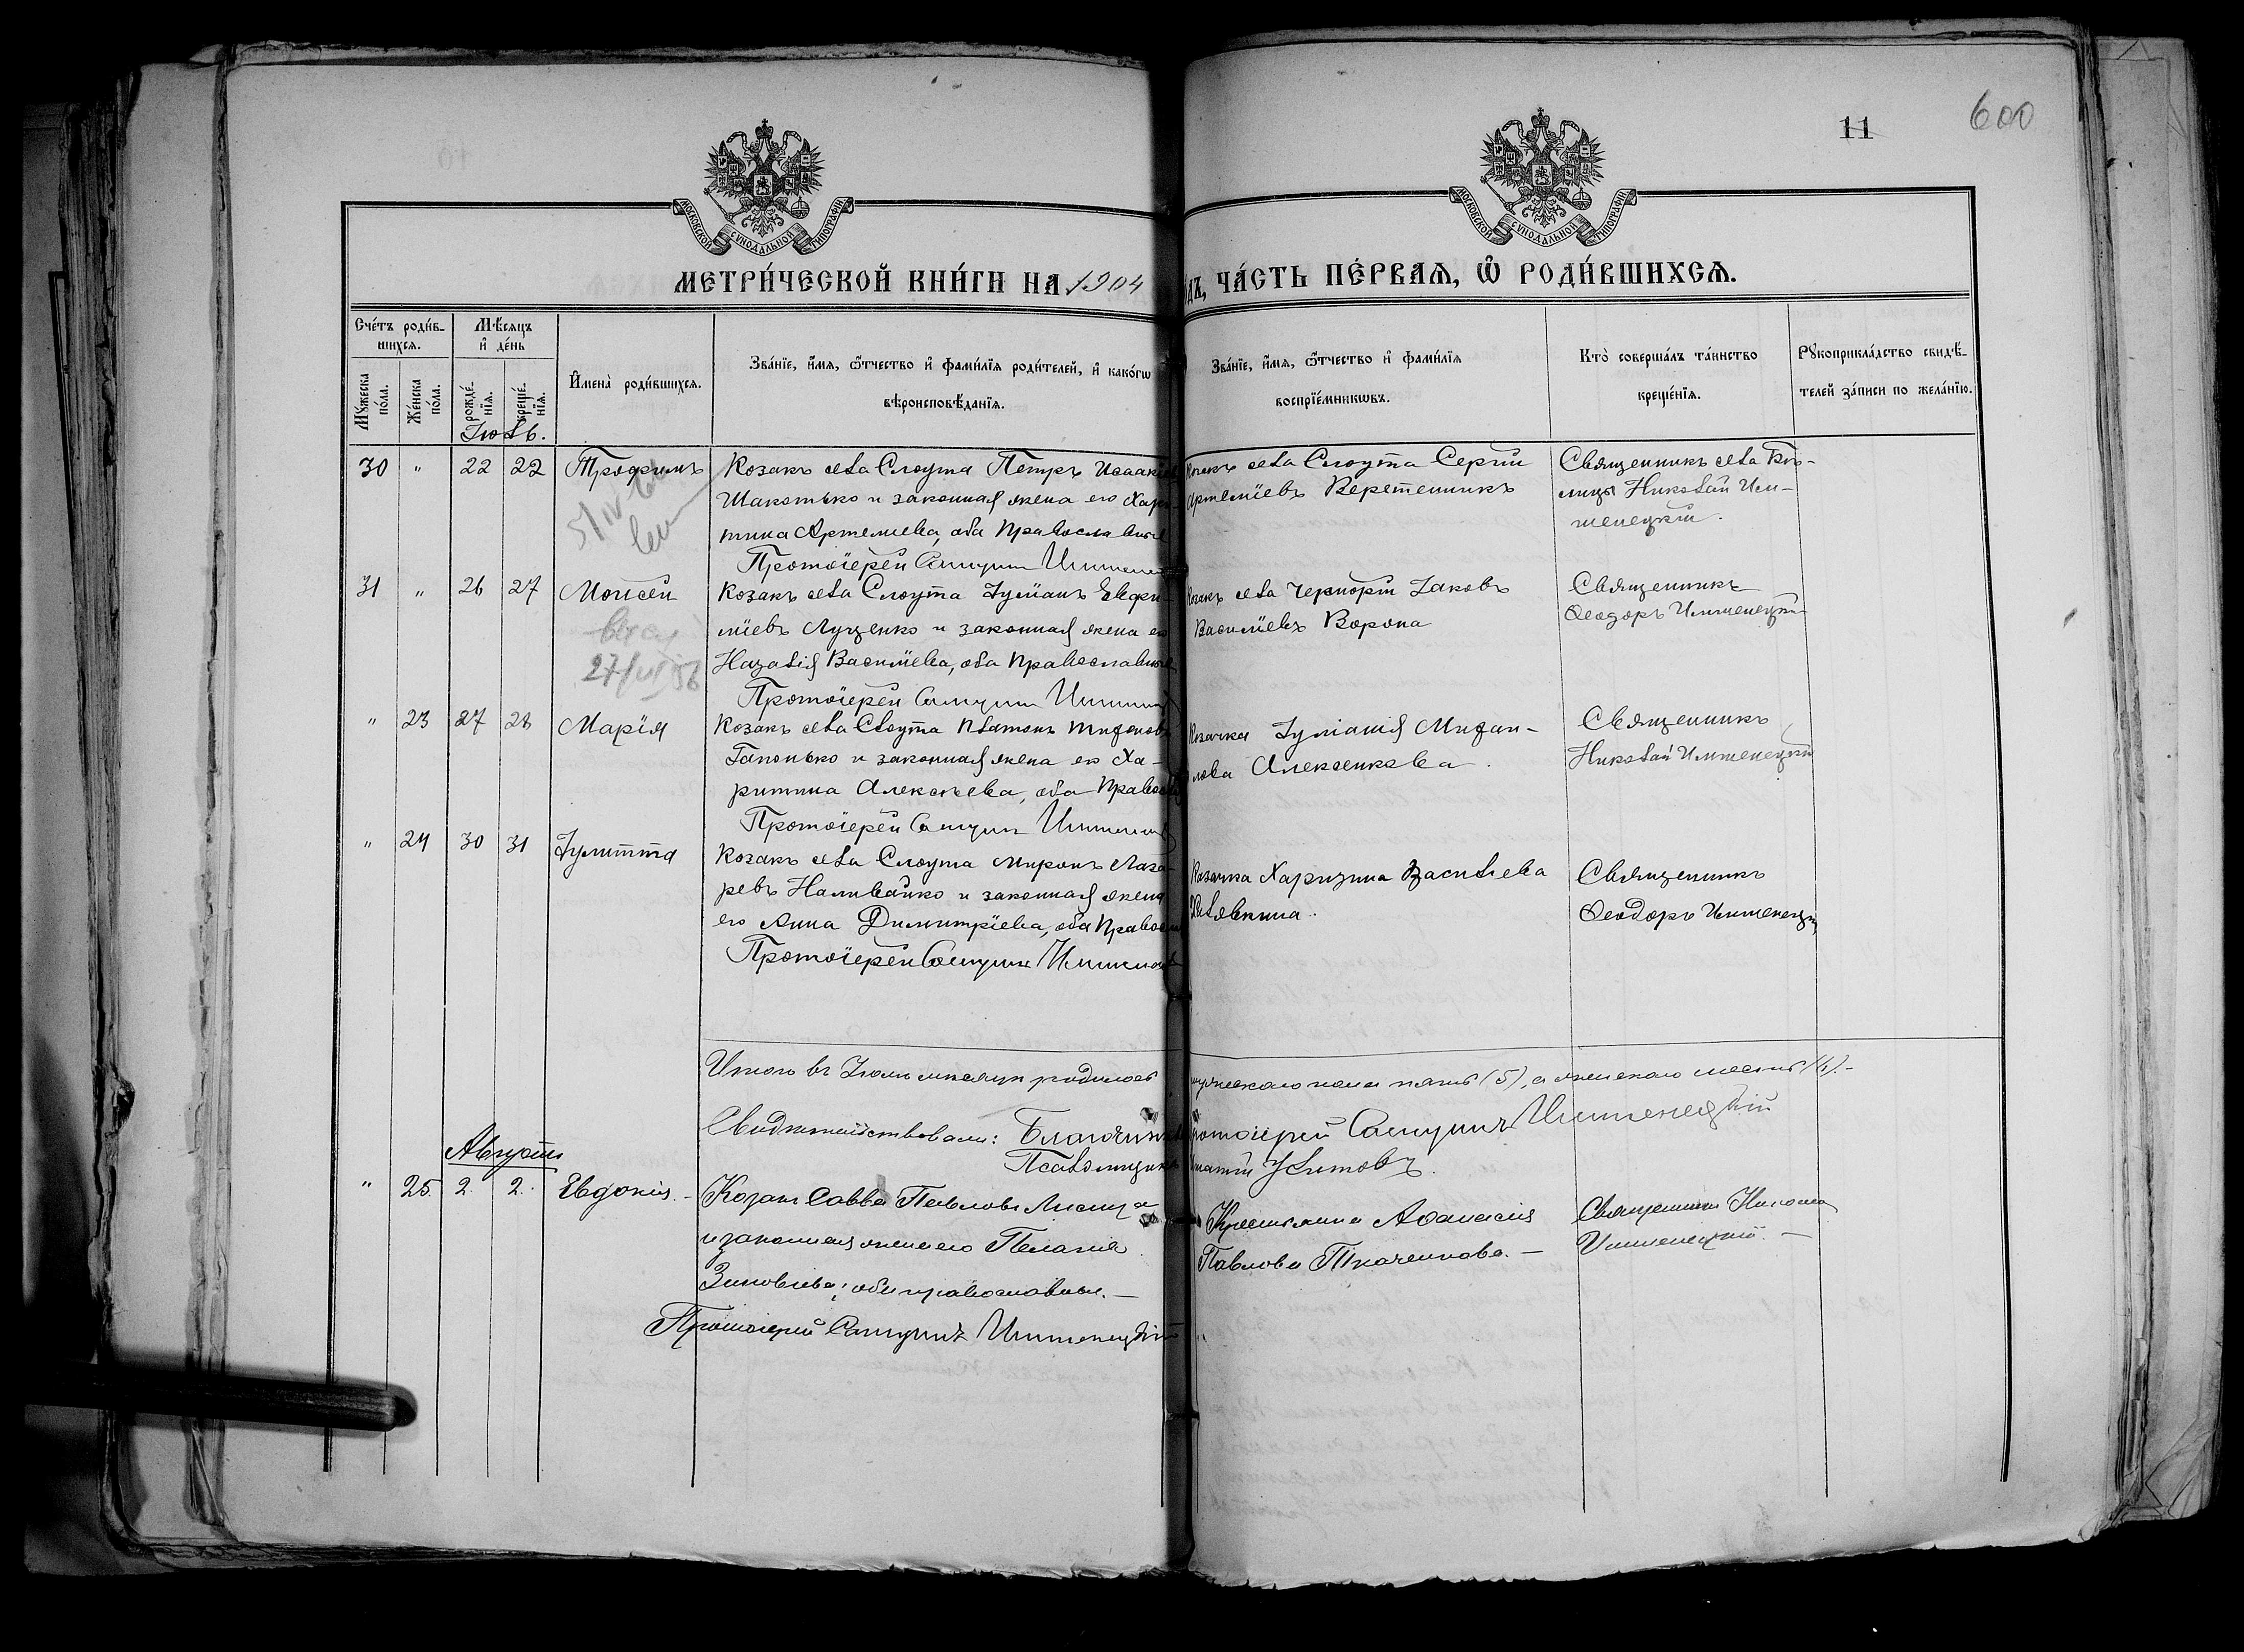 11
600
МОСКОВСКОЙ СУНОДАЛЬНОЙ ТИПОГРАФІИ
МОСКОВСКОЙ СУНОДАЛЬНОЙ ТИПОГРАФІИ
МЕТРИ́ЧЕСКОЙ КНИ́ГИ НА 1904
ДЪ, ЧА́СТЬ ПЕ́РВАѦ, Ѿ РОДИ́ВШИХСѦ.
Сче́тъ роди́в-
шихсѧ.
Мꙋ́жеска по́ла.
Же́нска по́ла.
Мѣ́сѧцъ и҆ де́нь
рожде́-нїѧ.
креще́-нїѧ.
И҆мена̀ роди́вшихсѧ.
Зва́нїе, и҆́мѧ, ѻ҆́тчество и҆ фами́лїѧ роди́телей, и҆ како́гѡ
вѣроисповѣ́данїѧ.
Зва́нїе, и҆́мѧ, ѻ҆́тчество и҆ фами́лїѧ
воспрїе́мникѡвъ.
Кто̀ соверша́лъ та́инство
креще́нїѧ.
Рꙋкоприкла́дство свидѣ́-
телей за́писи по жела́нїю.
Іюль.
30 " 22 22 Трофимъ
Козакъ села Слоута Петръ Исаакіевъ
Шакотько и законная жена его Хари-
тина Артемиева, оба Православные
Протоіерей Самуилъ Имшенецкій
Козакъ села Слоута Сергій
Артеміевъ Веретенникъ
Священникъ села
Николай Им-
шенецкій.
31 " 26 27 Моисей
27/VI 56
Козакъ села Слоута Іуліанъ Евфи-
міевъ Луценко и законная жена его
Назалія Василіева, оба Православные
Протоіерей Самуилъ
Козакъ села Чернорти Іаковъ
Василіевъ Ворона
Священникъ
Ѳеодоръ Имшенецкій
" 23 27 28 Марія
Козакъ села Слоута Платонъ
Гапонько и законная жена его Ха-
ритина Алексѣева, оба Правосл
Протоіерей Самуилъ
Козачка Іуліанія Михаи-
лова Алексеикова.
Священникъ
Николай Имшенецкій
" 24 30 31 Іулитта
Козакъ села Слоута Миронъ Лаза-
ревъ Наливайко и законная жена
его Анна Димитріева, оба Правосл
Протоіерей Самуилъ Имшенецкій
Козачка Харитина Васильева
Священникъ
Ѳеодоръ Имшенецкій
Итого въ Іюлѣ мѣсяцѣ родилось мужескаго пола пять (5), а женскаго шесть (6).-
Свидѣтельствовали: Благочинный Протоіерей Самуилъ Имшенецкій
Псаломщикъ Игнатій Улитовъ.
Августъ
" 25. 2. 2. Евдокія. -
Козакъ Савва Павловъ Лисица
и законная жена его Пелагія
Зиновіева; оба православные. -
Протоіерей Самуилъ Имшенецкій
Крестьянка Аѳанасія
Павлова Ткаченкова. -
Священникъ Николай
Имшенецкій. -